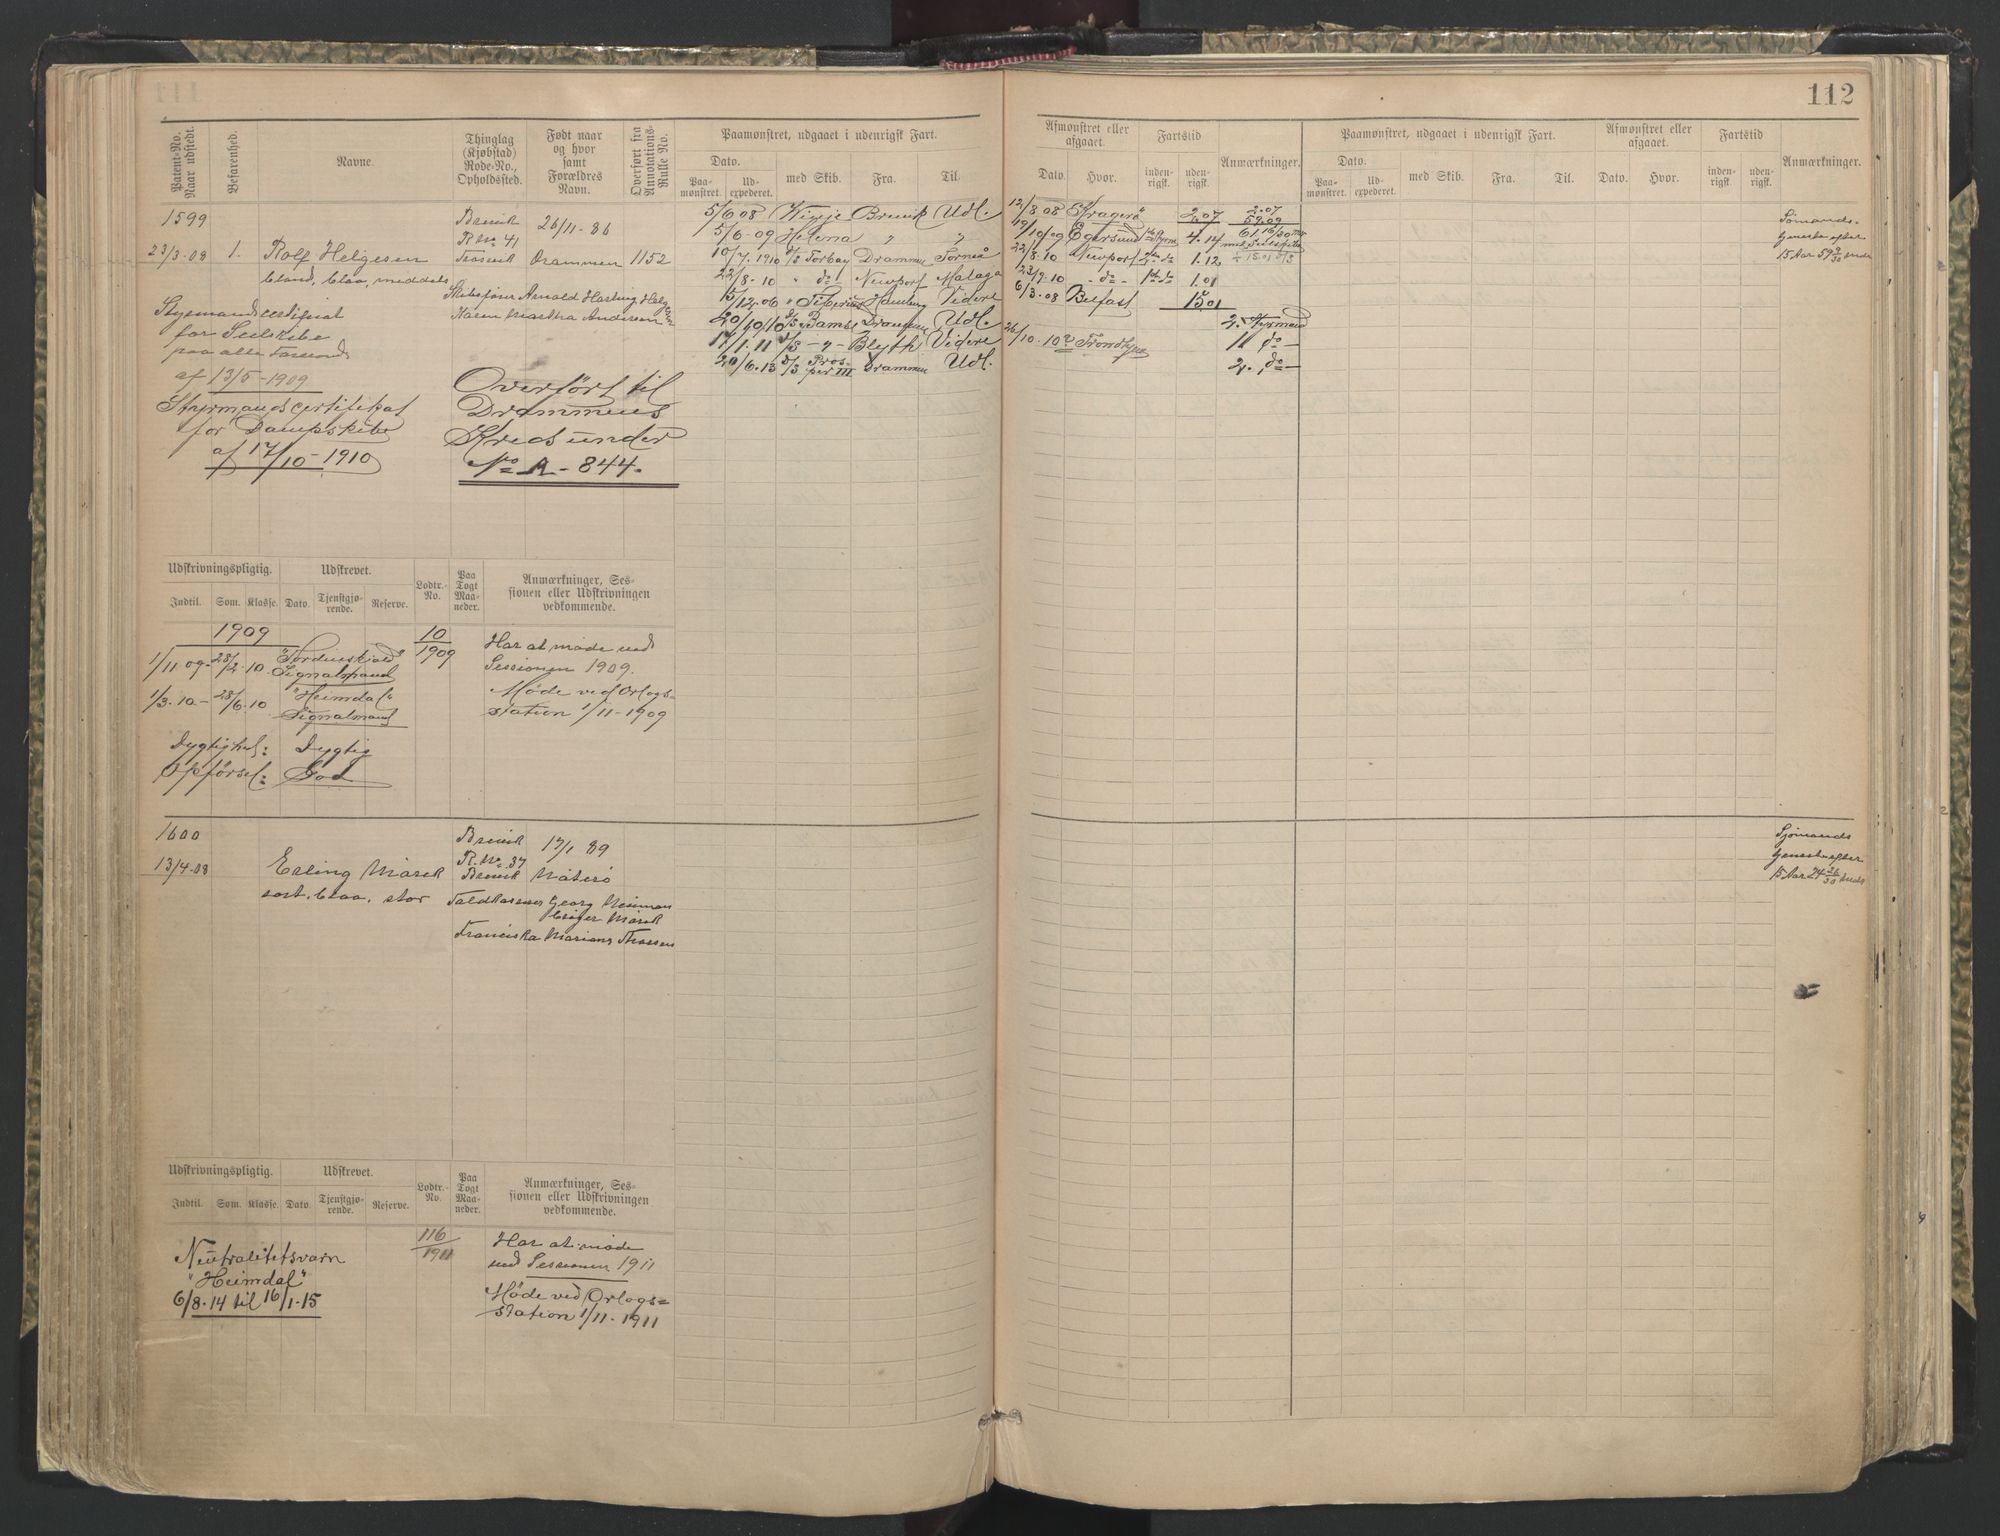 112
Patent-No. Naar udstedt.
Befarenhed.
Navne.
Thinglag (Kjøbstad) Rode-No., Opholdssted.
Født naar og hvor samt Forældres Navn.
Overført fra Annotations-Rulle No.
Paamønstret, udgaaet i udenrigsk Fart.
Dato. Paamønstret. Udexpederet. med Skib. Fra. Til.
Afmønstret eller afgaaet. Dato. Hvor.
Fartstid indenrigsk. udenrigsk.
Anmærkninger.
Paamønstret, udgaaet i udenrigsk Fart.
Dato. Paamønstret. Udexpederet. med Skib. Fra. Til.
Afmønstret eller afgaaet. Dato. Hvor.
Fartstid indenrigsk. udenrigsk.
Anmærkninger.
1599
23/3-08 1. Rolf Helgesen
blond, blaa, middels
Brevik
R. No 41
26/11-86
Drammen 1152
Skibsfører Arnold Helgesen
Karen Martha Andersen
Styrmandscertifikat
for Seilskibe
paa alle
af 13/5-1909
Styrmandscertifikat
for Dampskibe
af 17/10-1910
Overført til
Drammens
Kreds under
No A-844.
5/6 08 Brevik Udl. 12/8 08 Kragerø 2.07
5/6-09 Helena " " 19/10 09 Egersund 4.14
10/7 1910 Torbay Drammen 22/8.10 Newport 1.12
22/8-10 " do Newport Malaga 23/9.10 " do 1.01
15/12.06 " Hamburg Videre 6/3-08 Belfast 15 01
20/10/10 D/S Bamse Drammen Udl. 2. Styrmand
17/1.11 D/S - " - Blyth Videre 1 do -
20/6-13 D/S Prosper III Drammen Udl. 2. do -
Sømands-
tjeneste efter
15 Aar 59
Udskrivningspligtig. Udskrevet. Lodtr.-No. Paa Togt Maaneder. Anmærkninger, Sessionen eller Udskrivningen vedkommende.
Indtil. Som. Klasse. Dato. Tjenstgjørende. Reserve.
1909 10/1909
1/11 09- 28/2.10 "Tordenskjold"
Signalmand
1/3.10- 28/6.10 "Heimdal"
Signalmand
Har at møde ved
Sessionen 1909.
Møde ved Orlogs-
station 1/11-1909
Dygtighed: Dygtig
Opførsel: God
1600
13/4-08 Erling
sort, blaa, stor
Brevik
R. No 37
Brevik
17/1 89
Toldkasserer Georg
Franciska
Sjømands
tjeneste efter
15 Aar 24 26/30 mnd
Udskrivningspligtig. Udskrevet. Lodtr.-No. Paa Togt Maaneder. Anmærkninger, Sessionen eller Udskrivningen vedkommende.
Indtil. Som. Klasse. Dato. Tjenstgjørende. Reserve.
116/1911
Neutralitetsvarn
"Heimdal"
6/8-14 til 16/1-15
Har at møde
ved Sessionen 1911
Møde ved Orlogs-
station 1/11-1911